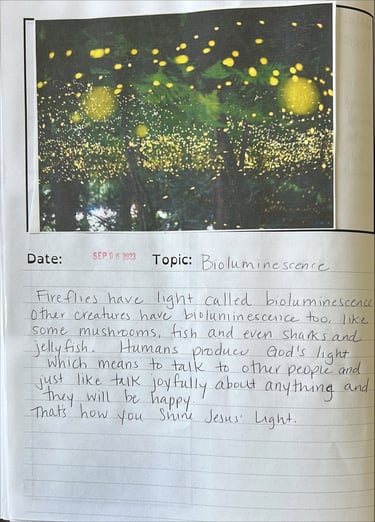 Date: SEP 06 2023 Topic: Bioluminescence
Fireflies have light called bioluminescence
Other creatures have bioluminescence too, like
some mushrooms, fish and even sharks and
jellyfish. Humans produce God's light
which means to talk to other people and
just like talk joyfully about anything and
they will be happy.
That's how you shine Jesus' Light.